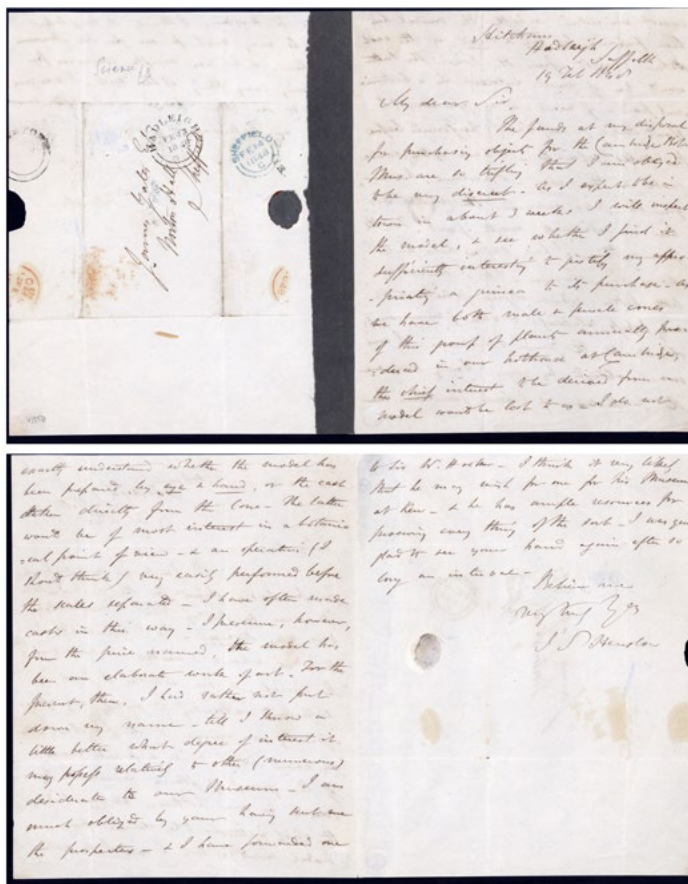 Science /8
HADLEIGH
FE 13
1848
SHEFFIELD
FE 14
1848
C
James Yates Esq
Norton Hall
Sheffield
Hitcham
Hadleigh
Suffolk
19 Feb 1848
My dear Sir,
The funds at my disposal
for purchasing objects for the Cambridge Bot
Mus. are so trifling that I am obliged
to be very discreet - As I expect to be in
town in about 3 weeks I will inspect
the model, & see whether I find it
sufficiently interesting to justify my appro-
-priating a guinea to its purchase - As
we have both male & female cones
of this group of plants annually pro
-duced in our hothouse at Cambridge,
the chief interest to be derived from
model would be lost to us - I do not
exactly understand whether the model has
been prepared by eye & hand, or the cast
taken directly from the Cone - The latter
would be of most interest in a botani
-cal point of view - & an operation (I
should think) very easily performed before
the scales separated - I have often made
casts in this way - I presume, however,
from the price named, the model has
been an elaborate work of art - For the
present, then, I had rather not put
down my name - till I know a
little better what degree of interest it
may possess relatively to other (numerous)
desiderata to our Museum - I am
much obliged by your having sent me
the prospectus - & I have forwarded one
to Sir W. Hooker - I think it very likely
that he may wish for one for his Museum
at Kew - & he has ample resources for
procuring every thing of the sort - I was
glad to see your hand again after so
long an interval -
Believe me
Very truly Yrs
J S Henslow